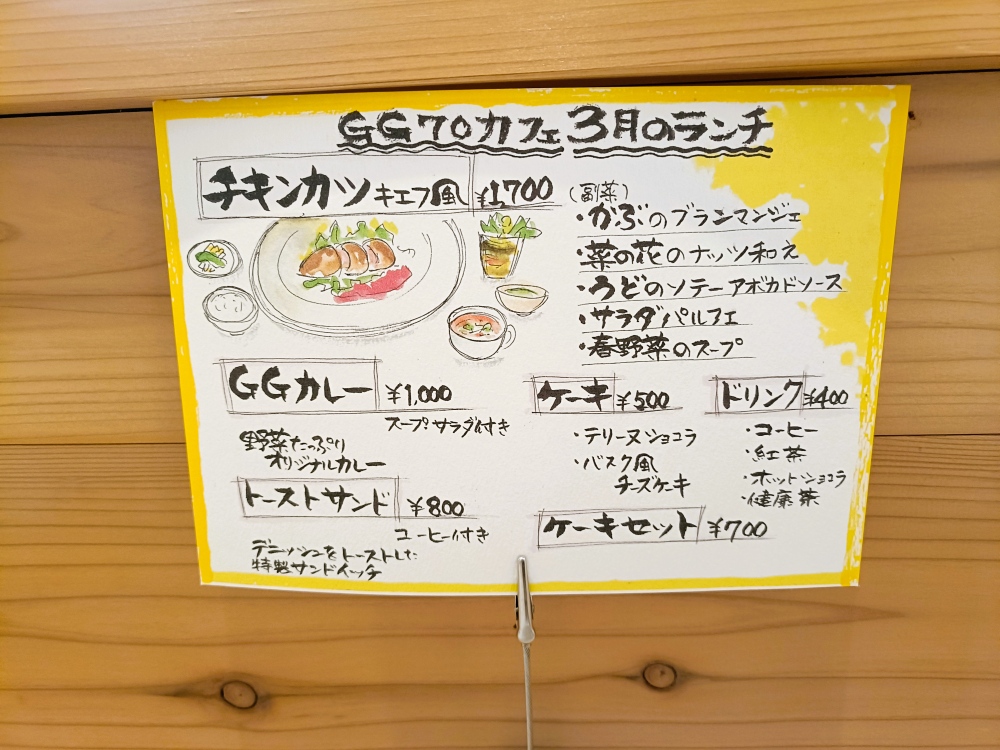 GG70カフェ 3月のランチ
チキンカツ キエフ風 ¥1,700
(副菜)
・かぶのブランマンジェ
・菜の花のナッツ和え
・うどのソテー アボカドソース
・サラダパルフェ
・春野菜のスープ
GGカレー ¥1,000
スープ・サラダ付き
野菜たっぷり
オリジナルカレー
トーストサンド ¥800
コーヒー付き
デニッシュをトーストした
特製サンドイッチ
ケーキ ¥500
・テリーヌショコラ
・バスク風
チーズケーキ
ドリンク ¥400
・コーヒー
・紅茶
・ホットショコラ
・健康茶
ケーキセット ¥700